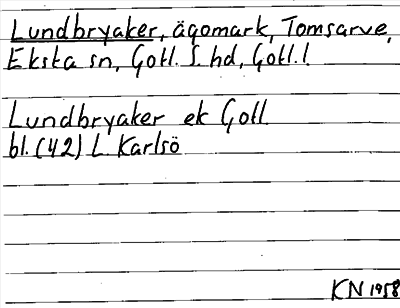 Lundbryaker, ägomark, Tomsarve,
Eksta sn, Gotl. S. hd, Gotl. l
Lundbryaker ek Gotl.
bl. (42) L. Karlsö
KN 1958